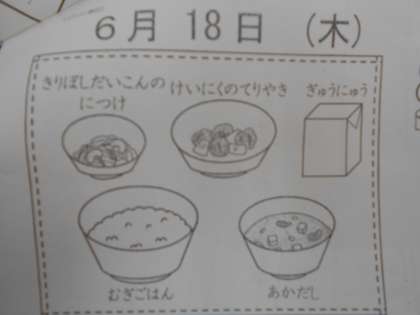 6月 18日 (木)
きりぼしだいこんの
につけ
けいにくのてりやき
ぎゅうにゅう
むぎごはん
あかだし